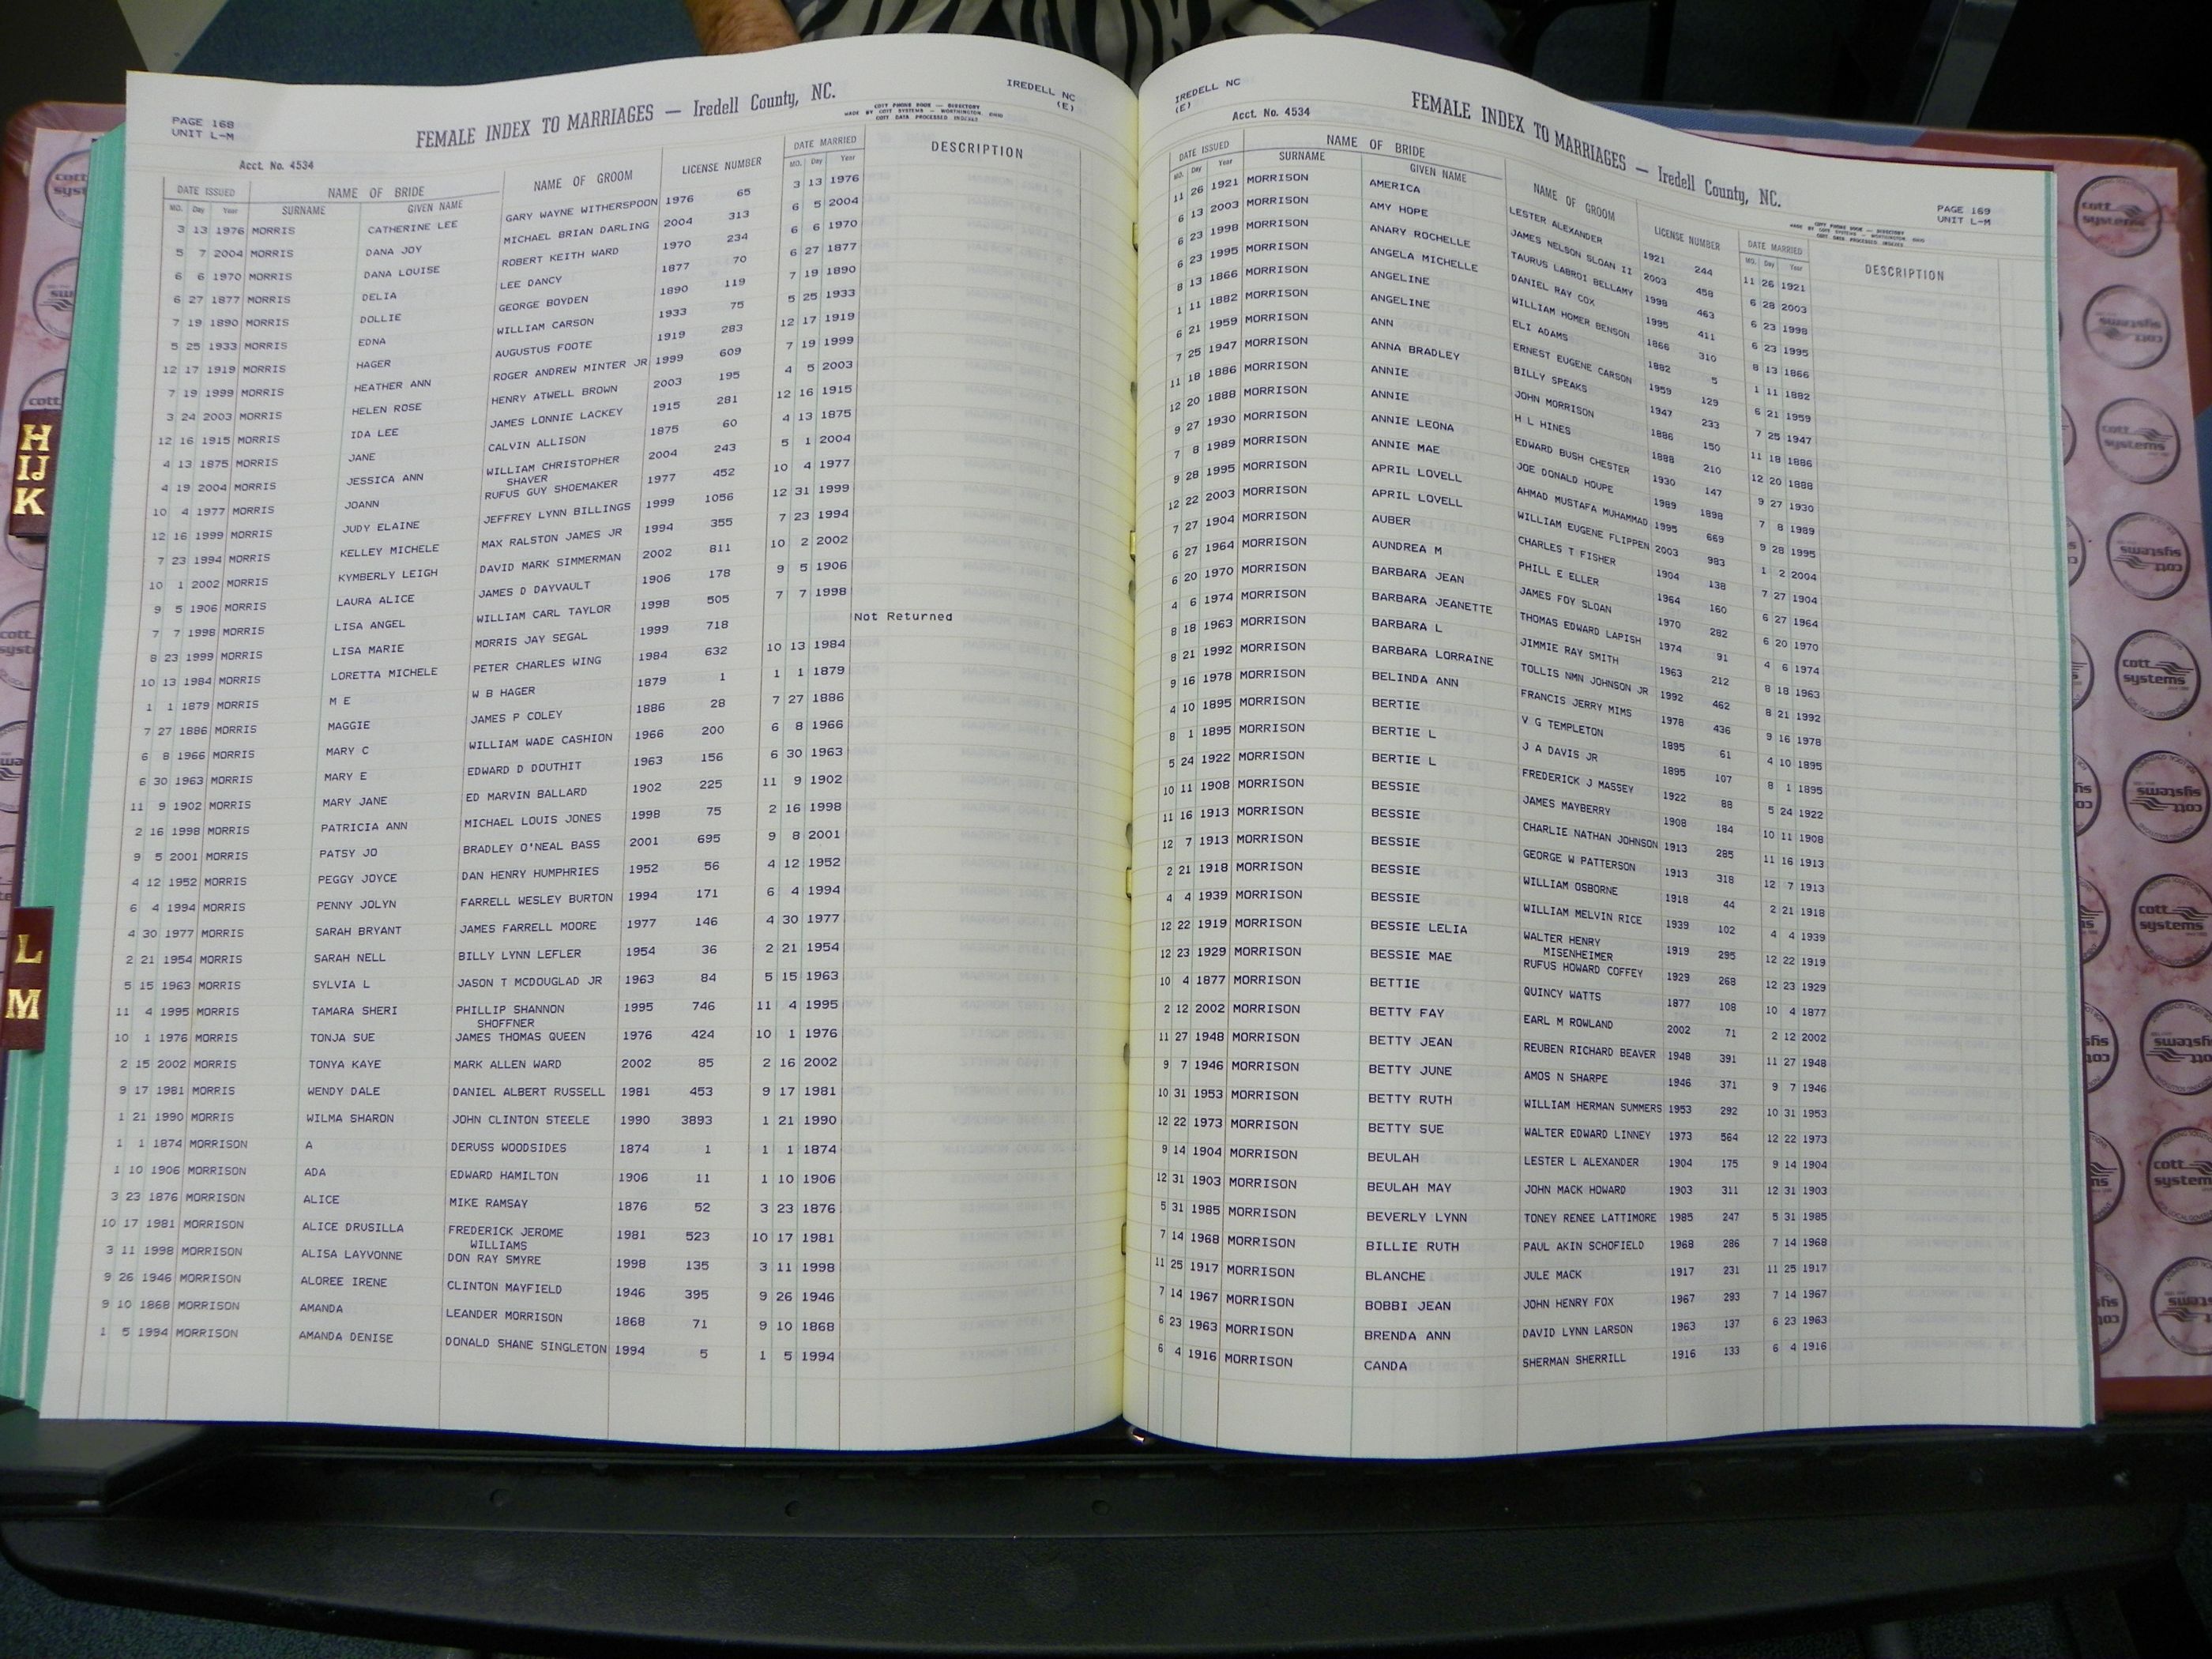 PAGE 168
UNIT L-M
FEMALE INDEX TO MARRIAGES — Iredell County, NC.
COTT PHONE BOOK — DIRECTORY
MADE BY COTT SYSTEMS — WORTHINGTON, OHIO
COTT DATA PROCESSED INDEXES
IREDELL NC
(E)
Acct. No. 4534
DATE ISSUED NAME OF BRIDE NAME OF GROOM LICENSE NUMBER DATE MARRIED DESCRIPTION
MO. Day Year SURNAME GIVEN NAME MO. Day Year
3 13 1976 MORRIS CATHERINE LEE GARY WAYNE WITHERSPOON 1976 65 3 13 1976
5 7 2004 MORRIS DANA JOY MICHAEL BRIAN DARLING 2004 313 6 5 2004
6 6 1970 MORRIS DANA LOUISE ROBERT KEITH WARD 1970 234 6 6 1970
6 27 1877 MORRIS DELIA LEE DANCY 1877 70 6 27 1877
7 19 1890 MORRIS DOLLIE GEORGE BOYDEN 1890 119 7 19 1890
5 25 1933 MORRIS EDNA WILLIAM CARSON 1933 75 5 25 1933
12 17 1919 MORRIS HAGER AUGUSTUS FOOTE 1919 283 12 17 1919
7 19 1999 MORRIS HEATHER ANN ROGER ANDREW MINTER JR 1999 609 7 19 1999
3 24 2003 MORRIS HELEN ROSE HENRY ATWELL BROWN 2003 195 4 5 2003
12 16 1915 MORRIS IDA LEE JAMES LONNIE LACKEY 1915 281 12 16 1915
4 13 1875 MORRIS JANE CALVIN ALLISON 1875 60 4 13 1875
4 19 2004 MORRIS JESSICA ANN WILLIAM CHRISTOPHER 2004 243 5 1 2004
SHAVER
10 4 1977 MORRIS JOANN RUFUS GUY SHOEMAKER 1977 452 10 4 1977
12 16 1999 MORRIS JUDY ELAINE JEFFREY LYNN BILLINGS 1999 1056 12 31 1999
7 23 1994 MORRIS KELLEY MICHELE MAX RALSTON JAMES JR 1994 355 7 23 1994
10 1 2002 MORRIS KYMBERLY LEIGH DAVID MARK SIMMERMAN 2002 811 10 2 2002
9 5 1906 MORRIS LAURA ALICE JAMES D DAYVAULT 1906 178 9 5 1906
7 7 1998 MORRIS LISA ANGEL WILLIAM CARL TAYLOR 1998 505 7 7 1998
8 23 1999 MORRIS LISA MARIE MORRIS JAY SEGAL 1999 718 Not Returned
10 13 1984 MORRIS LORETTA MICHELE PETER CHARLES WING 1984 632 10 13 1984
1 1 1879 MORRIS M E W B HAGER 1879 1 1 1 1879
7 27 1886 MORRIS MAGGIE JAMES P COLEY 1886 28 7 27 1886
6 8 1966 MORRIS MARY C WILLIAM WADE CASHION 1966 200 6 8 1966
6 30 1963 MORRIS MARY E EDWARD D DOUTHIT 1963 156 6 30 1963
11 9 1902 MORRIS MARY JANE ED MARVIN BALLARD 1902 225 11 9 1902
2 16 1998 MORRIS PATRICIA ANN MICHAEL LOUIS JONES 1998 75 2 16 1998
9 5 2001 MORRIS PATSY JO BRADLEY O'NEAL BASS 2001 695 9 8 2001
4 12 1952 MORRIS PEGGY JOYCE DAN HENRY HUMPHRIES 1952 56 4 12 1952
6 4 1994 MORRIS PENNY JOLYN FARRELL WESLEY BURTON 1994 171 6 4 1994
4 30 1977 MORRIS SARAH BRYANT JAMES FARRELL MOORE 1977 146 4 30 1977
2 21 1954 MORRIS SARAH NELL BILLY LYNN LEFLER 1954 36 2 21 1954
5 15 1963 MORRIS SYLVIA L JASON T MCDOUGLAD JR 1963 84 5 15 1963
11 4 1995 MORRIS TAMARA SHERI PHILLIP SHANNON 1995 746 11 4 1995
SHOFFNER
10 1 1976 MORRIS TONJA SUE JAMES THOMAS QUEEN 1976 424 10 1 1976
2 15 2002 MORRIS TONYA KAYE MARK ALLEN WARD 2002 85 2 16 2002
9 17 1981 MORRIS WENDY DALE DANIEL ALBERT RUSSELL 1981 453 9 17 1981
1 21 1990 MORRIS WILMA SHARON JOHN CLINTON STEELE 1990 3893 1 21 1990
1 1 1874 MORRISON A DERUSS WOODSIDES 1874 1 1 1 1874
1 10 1906 MORRISON ADA EDWARD HAMILTON 1906 11 1 10 1906
3 23 1876 MORRISON ALICE MIKE RAMSAY 1876 52 3 23 1876
10 17 1981 MORRISON ALICE DRUSILLA FREDERICK JEROME 1981 523 10 17 1981
WILLIAMS
3 11 1998 MORRISON ALISA LAYVONNE DON RAY SMYRE 1998 135 3 11 1998
9 26 1946 MORRISON ALOREE IRENE CLINTON MAYFIELD 1946 395 9 26 1946
9 10 1868 MORRISON AMANDA LEANDER MORRISON 1868 71 9 10 1868
1 5 1994 MORRISON AMANDA DENISE DONALD SHANE SINGLETON 1994 5 1 5 1994
IREDELL NC
(E)
Acct. No. 4534
FEMALE INDEX TO MARRIAGES — Iredell County, NC.
COTT PHONE BOOK — DIRECTORY
MADE BY COTT SYSTEMS — WORTHINGTON, OHIO
COTT DATA PROCESSED INDEXES
PAGE 169
UNIT L-M
DATE ISSUED NAME OF BRIDE NAME OF GROOM LICENSE NUMBER DATE MARRIED DESCRIPTION
MO. Day Year SURNAME GIVEN NAME MO. Day Year
11 26 1921 MORRISON AMERICA LESTER ALEXANDER 1921 244 11 26 1921
6 13 2003 MORRISON AMY HOPE JAMES NELSON SLOAN II 2003 458 6 28 2003
6 23 1998 MORRISON ANARY ROCHELLE TAURUS LABROI BELLAMY 1998 463 6 23 1998
6 23 1995 MORRISON ANGELA MICHELLE DANIEL RAY COX 1995 411 6 23 1995
8 13 1866 MORRISON ANGELINE WILLIAM HOMER BENSON 1866 310 8 13 1866
1 11 1882 MORRISON ANGELINE ELI ADAMS 1882 5 1 11 1882
6 21 1959 MORRISON ANN ERNEST EUGENE CARSON 1959 129 6 21 1959
7 25 1947 MORRISON ANNA BRADLEY BILLY SPEAKS 1947 233 7 25 1947
11 18 1886 MORRISON ANNIE JOHN MORRISON 1886 150 11 18 1886
12 20 1888 MORRISON ANNIE H L HINES 1888 210 12 20 1888
9 27 1930 MORRISON ANNIE LEONA EDWARD BUSH CHESTER 1930 147 9 27 1930
7 8 1989 MORRISON ANNIE MAE JOE DONALD HOUPE 1989 1898 7 8 1989
9 28 1995 MORRISON APRIL LOVELL AHMAD MUSTAFA MUHAMMAD 1995 669 9 28 1995
12 22 2003 MORRISON APRIL LOVELL WILLIAM EUGENE FLIPPEN 2003 983 1 2 2004
7 27 1904 MORRISON AUBER CHARLES T FISHER 1904 138 7 27 1904
6 27 1964 MORRISON AUNDREA M PHILL E ELLER 1964 160 6 27 1964
6 20 1970 MORRISON BARBARA JEAN JAMES FOY SLOAN 1970 282 6 20 1970
4 6 1974 MORRISON BARBARA JEANETTE THOMAS EDWARD LAPISH 1974 91 4 6 1974
8 18 1963 MORRISON BARBARA L JIMMIE RAY SMITH 1963 212 8 18 1963
8 21 1992 MORRISON BARBARA LORRAINE TOLLIS NMN JOHNSON JR 1992 462 8 21 1992
9 16 1978 MORRISON BELINDA ANN FRANCIS JERRY MIMS 1978 436 9 16 1978
4 10 1895 MORRISON BERTIE V G TEMPLETON 1895 61 4 10 1895
8 1 1895 MORRISON BERTIE L J A DAVIS JR 1895 107 8 1 1895
5 24 1922 MORRISON BERTIE L FREDERICK J MASSEY 1922 88 5 24 1922
10 11 1908 MORRISON BESSIE JAMES MAYBERRY 1908 184 10 11 1908
11 16 1913 MORRISON BESSIE CHARLIE NATHAN JOHNSON 1913 285 11 16 1913
12 7 1913 MORRISON BESSIE GEORGE W PATTERSON 1913 318 12 7 1913
2 21 1918 MORRISON BESSIE WILLIAM OSBORNE 1918 44 2 21 1918
4 4 1939 MORRISON BESSIE WILLIAM MELVIN RICE 1939 102 4 4 1939
12 22 1919 MORRISON BESSIE LELIA WALTER HENRY 1919 295 12 22 1919
MISENHEIMER
12 23 1929 MORRISON BESSIE MAE RUFUS HOWARD COFFEY 1929 268 12 23 1929
10 4 1877 MORRISON BETTIE QUINCY WATTS 1877 108 10 4 1877
2 12 2002 MORRISON BETTY FAY EARL M ROWLAND 2002 71 2 12 2002
11 27 1948 MORRISON BETTY JEAN REUBEN RICHARD BEAVER 1948 391 11 27 1948
9 7 1946 MORRISON BETTY JUNE AMOS N SHARPE 1946 371 9 7 1946
10 31 1953 MORRISON BETTY RUTH WILLIAM HERMAN SUMMERS 1953 292 10 31 1953
12 22 1973 MORRISON BETTY SUE WALTER EDWARD LINNEY 1973 564 12 22 1973
9 14 1904 MORRISON BEULAH LESTER L ALEXANDER 1904 175 9 14 1904
12 31 1903 MORRISON BEULAH MAY JOHN MACK HOWARD 1903 311 12 31 1903
5 31 1985 MORRISON BEVERLY LYNN TONEY RENEE LATTIMORE 1985 247 5 31 1985
7 14 1968 MORRISON BILLIE RUTH PAUL AKIN SCHOFIELD 1968 286 7 14 1968
11 25 1917 MORRISON BLANCHE JULE MACK 1917 231 11 25 1917
7 14 1967 MORRISON BOBBI JEAN JOHN HENRY FOX 1967 293 7 14 1967
6 23 1963 MORRISON BRENDA ANN DAVID LYNN LARSON 1963 137 6 23 1963
6 4 1916 MORRISON CANDA SHERMAN SHERRILL 1916 133 6 4 1916
H
IJ
K
L
M
cott systems